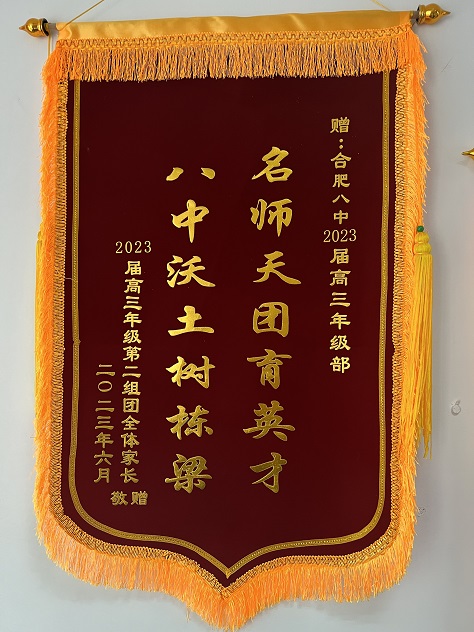 赠:合肥八中2023届高三年级部
名师天团育英才
八中沃土树栋梁
2023届高三年级第二组团全体家长
二〇二三年六月
敬赠